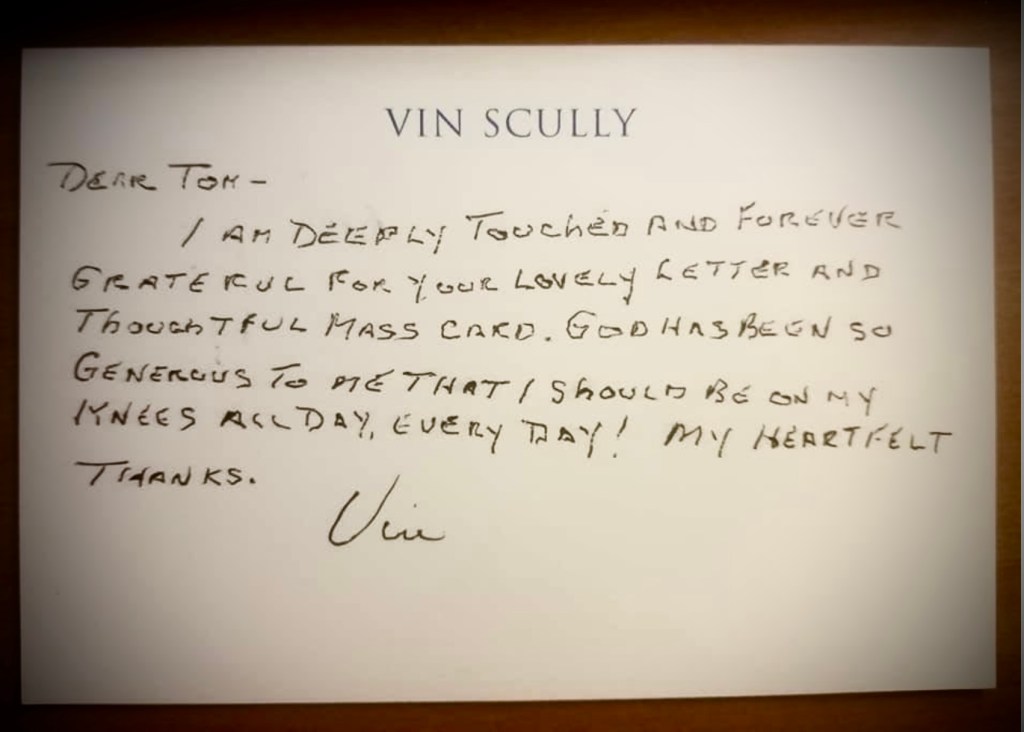 VIN SCULLY
DEAR TOM -
I AM DEEPLY TOUCHED AND FOREVER
GRATEFUL FOR YOUR LOVELY LETTER AND
THOUGHTFUL MASS CARD. GOD HAS BEEN SO
GENEROUS TO ME THAT I SHOULD BE ON MY
KNEES ALL DAY, EVERY DAY! MY HEARTFELT
THANKS.
Vin